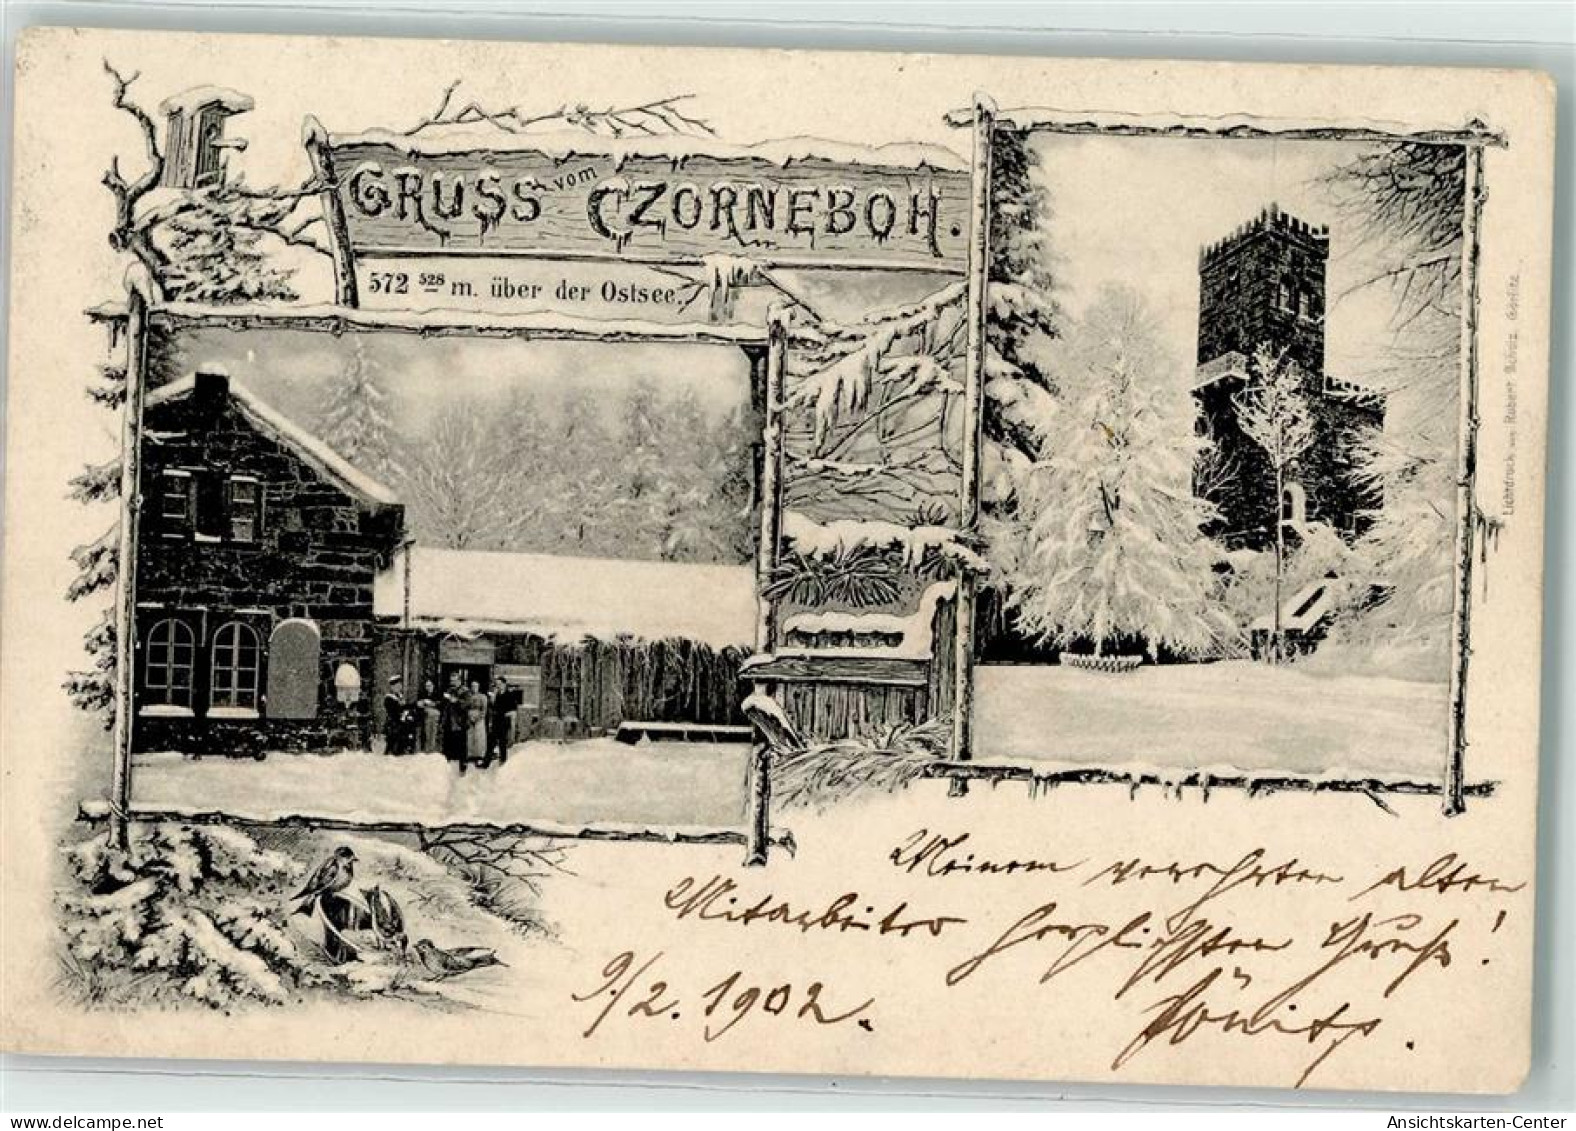 GRUSS vom CZORNEBOH.
572 528 m. über der Ostsee.
Lichtdruck von Robert Scholz, Görlitz.
Meinem verehrten alten
Mitarbeiter herzlichsten Gruß!
9./2. 1902.
delcampe.net
Ansichtskarten-Center